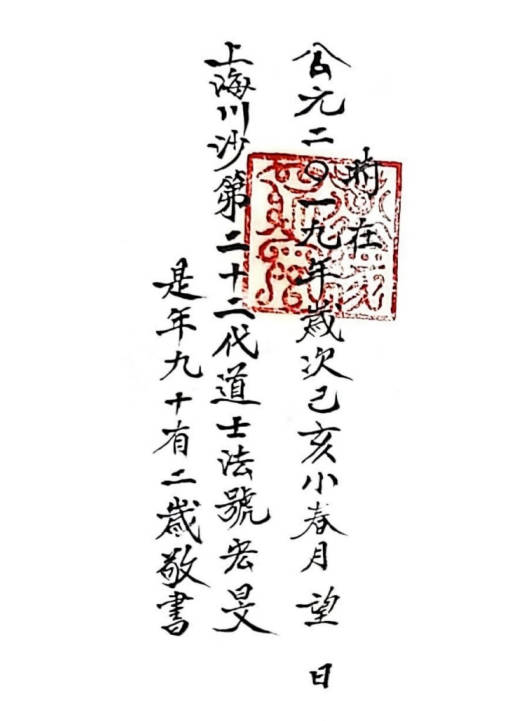 時在
公元二〇一九年歲次己亥小春月望日
上海川沙第二十二代道士法號宏旻
是年九十有二歲敬書